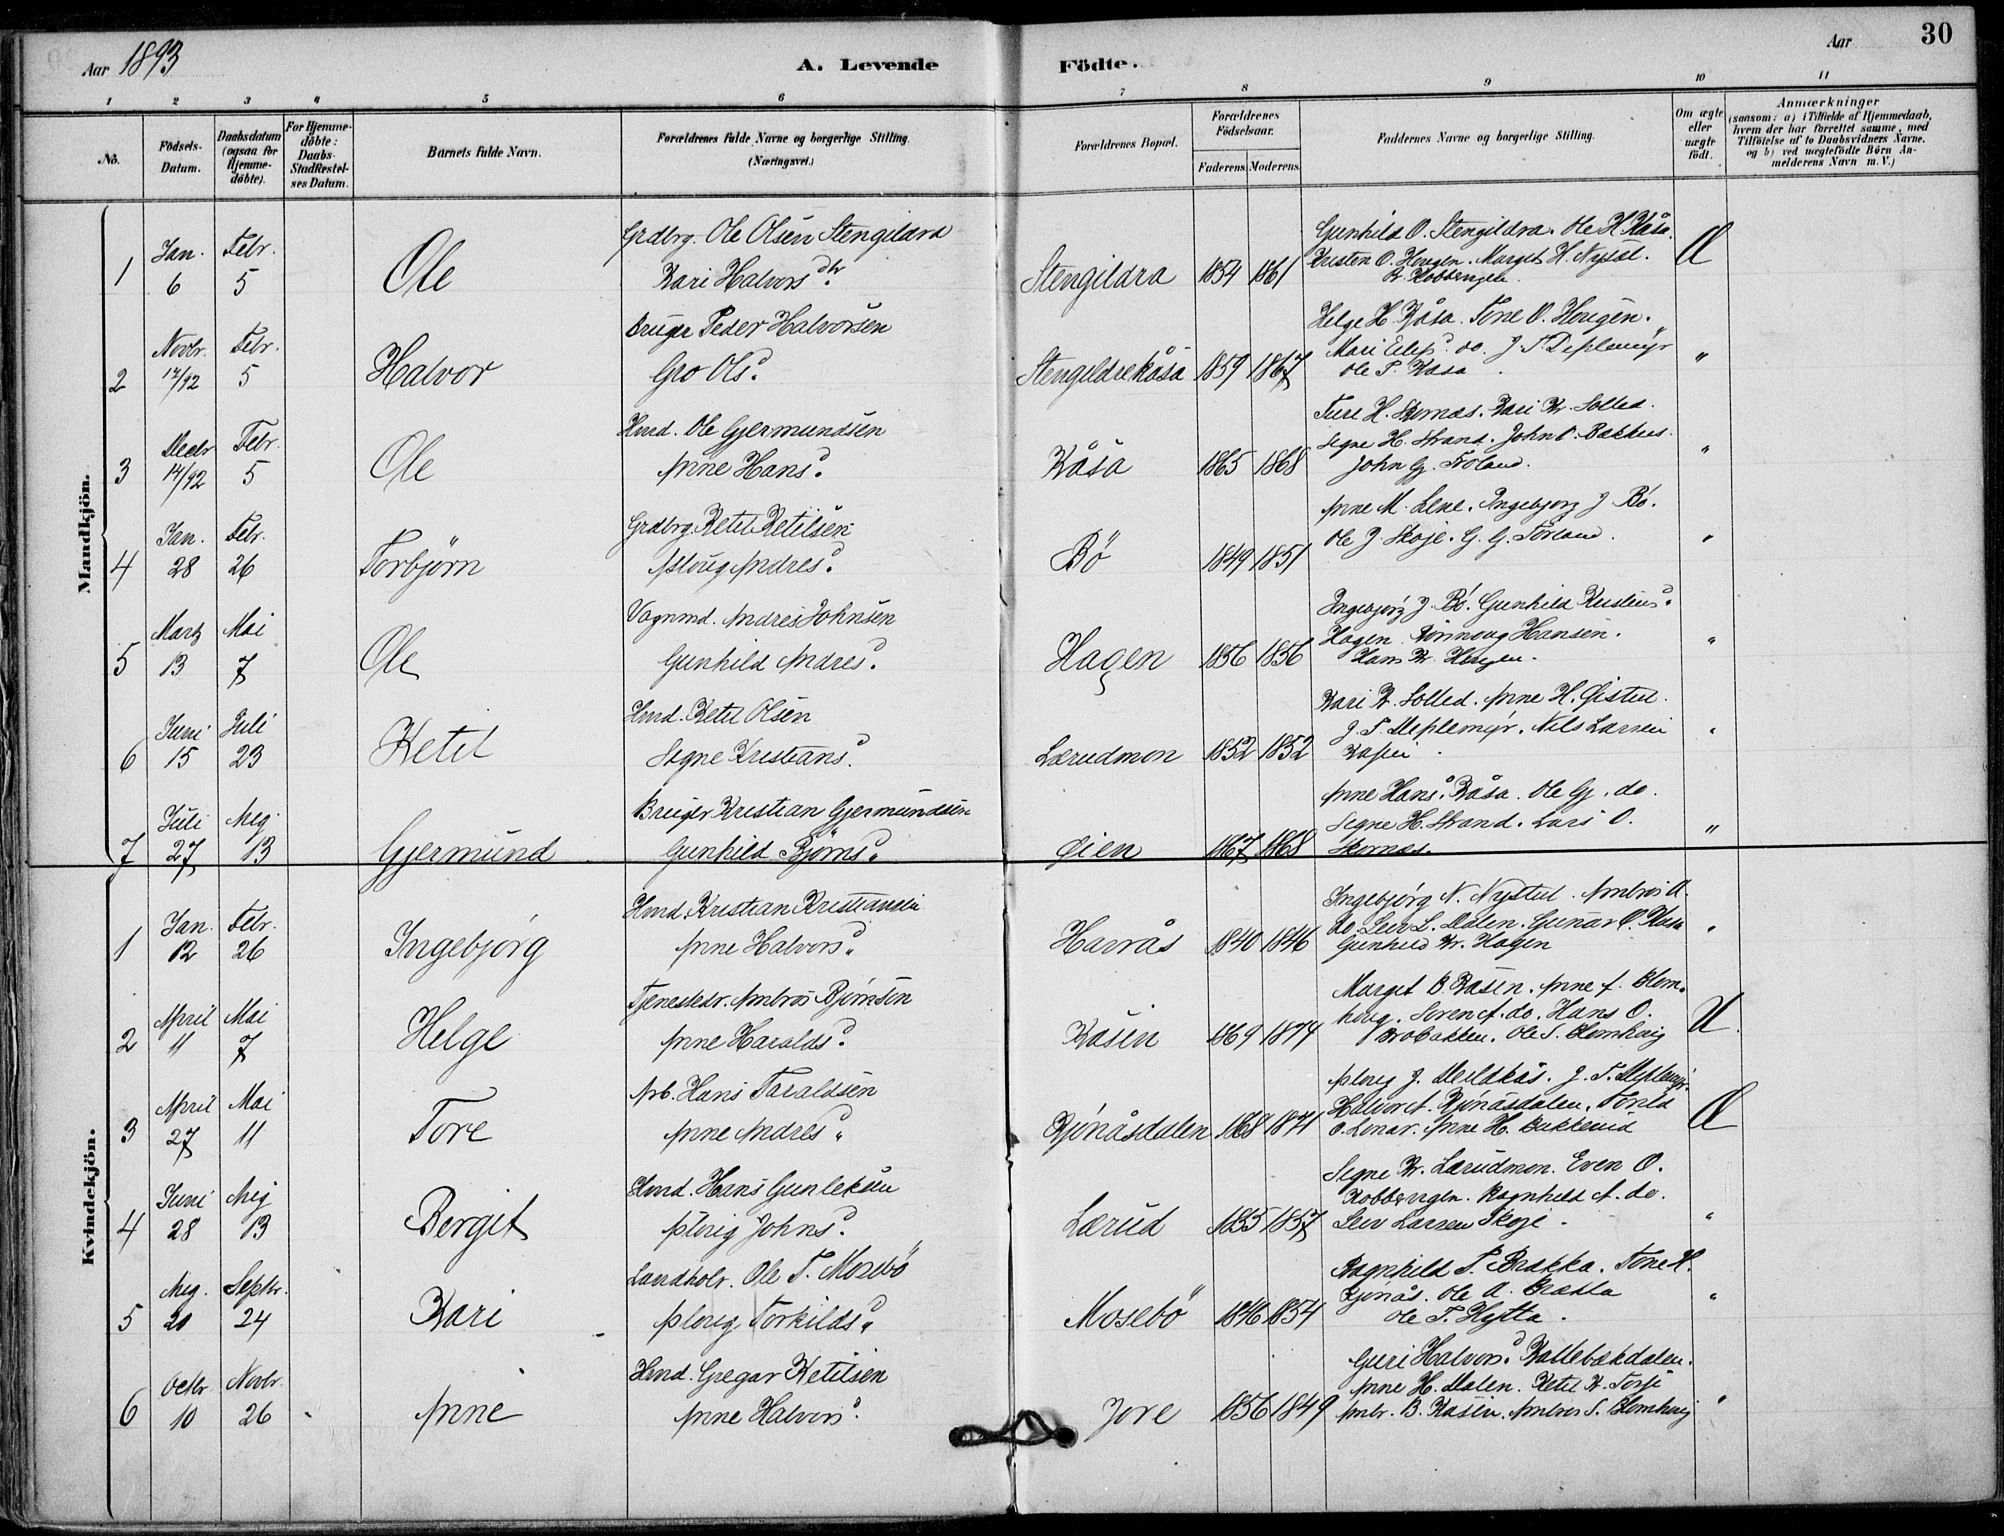 Aar 1893
A. Levende Födte.
Aar
30
1 2 3 4 5 6 7 8 9 10 11
No.
Födsels-Datum.
Daabsdatum (ogsaa for Hjemme-döbte).
For Hjemme-döbte: Daabs-Stadfæstel-ses Datum.
Barnets fulde Navn.
Forældrenes fulde Navne og borgerlige Stilling. (Næringsvei.)
Forældrenes Bopæl.
Forældrenes Födselsaar.
Faderens. Moderens.
Faddernes Navne og borgerlige Stilling.
Om ægte eller uægte födt.
Anmærkninger (saasom: a) i Tilfælde af Hjemmedaab, hvem der har forrettet samme, med Tilföielse af to Daabsvidners Navne. og b) ved uægtefödte Börn Anmelderens Navn m. V.)
Mandkjön.
1 Jan. 6 Febr. 5 Ole
Grdbrg. Ole Olsen Stengildra
Kari Halvorsdtr.
Stengildra 1854 1861
Gunhild O. Stengildra. Ole H. Kåsa.
Kristen O. Haugen. Marget H. Nystöl.
Kobbervolden
Æ
2 Novbr. 17/92 Febr. 5 Halvor
Bruger Peder Halvorsen
Gro Olsd.
Stengildrekåsa 1859 1867
Helge H. Kåsa. Tone O. Haugen.
J. T. Deplemyr
Ole P. Kåsa.
"
3 Decbr 14/92 Febr. 5 Ole
Hmd. Ole Gjermundsen
Anne Hansd.
Kåsa 1865 1868
Ture H. Skornæs. Kari Kr. Solted.
Signe H. Strand. John O. Bakkus.
John Gj. Troland.
"
4 Jan. 28 Febr. 26 Torbjörn
Grdbrg. Ketil Ketilsen
Aslaug Andresd.
Bö 1849 1851
Anne M. Lene. Ingebjorg J. Bö.
Ole J. Skoje. G. G. Torland.
"
5 Marts 13 Mai 7 Ole
Vognmd. Andres Johnsen
Gunhild Andresd.
Hagen 1856 1856
Ingebjörg J. Bö. Gunhild Kristensd.
Hagen. Rönnoug Hansen.
Hans Kr. Haugen.
"
6 Juni 15 Juli 23 Ketil
Hmd. Ketil Olsen
Signe Kristiansd.
Lærudmon 1852 1852
Kari K. Solted. Anne H. Øistul.
J. T. Deplemyr. Nils Larsen
"
7 Juli 27 Aug. 13 Gjermund
Bruger Kristian Gjermundsen
Gunhild Björnsd.
Øien 1867 1868
Anne Hansd. Kåsa. Ole Gj. do.
Signe H. Strand. Lars O.
Skornæs.
"
Kvindekjön.
1 Jan. 12 Febr. 26 Ingebjörg
Hmd. Kristian Kristiansen
Anne Halvorsd.
Havrås 1840 1846
Ingebjörg N. Nystul. Ambros A.
do. Leiv L. Dalen. Gunar O. Kåsa
Gunhild Kr. Hagen
"
2 April 11 Mai 7 Helge
Tjenestedr. Ambros Björnsen
Anne Haraldsd.
Kåsin 1869 1874
Marget B. Kåsin. Anne A. Blom-
houg. Soren A. do. Hans O.
Brobakken. Ole S. Blomhoug
U.
3 April 27 Mai 11 Tore
Arb. Hans Taraldsen
Anne Andresd.
Bjönåsdalen 1868 1871
Aslaug J. Meldkås. J. T. Deplemyr.
Halvor A. Bjönåsdalen. Torild
O. Lonar. Anne H. Bakkerud
Æ
4 Juni 28 Aug. 13 Bergit
Hmd. Hans Gunleksen
Aslaug Johnsd.
Lærud 1855 1857
Signe Kr. Lærudmon. Even O.
Ragnhild A. do.
Leiv Larsen Skoje.
"
5 Aug. 20 Septbr. 24 Kari
Landholr. Ole T. Mosebö
Aslaug Torkildsd.
Mosebö 1846 1854
Ragnhild T. Brakka. Tone H.
Bjönås. Ole A. Brakka
Ole T. Hytta.
"
6 Octbr. 10 Novbr. 26 Anne
Hmd. Gregar Ketilsen
Anne Halvorsd.
Jore 1856 1849
Guri Halvorsd. Kallebækdalen.
Anne H. Dalen. Ketil K. Torje
Ambr. B. Kåsin. Ambros S. Blomhoug
"